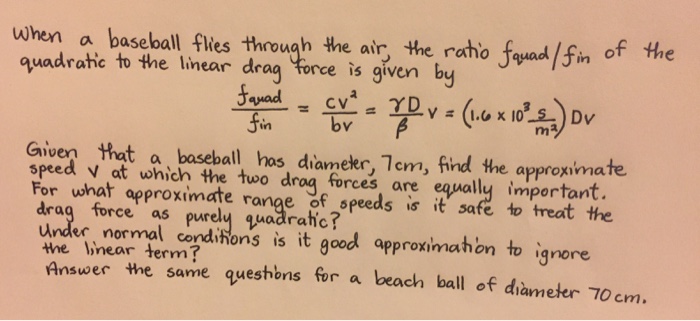 When a baseball flies through the air, the ratio fquad/fin of the
quadratic to the linear drag force is given by
fquad/fin = cv²/bv = γD/β v = (1.6 x 10³ s/m²) Dv
Given that a baseball has diameter, 7cm, find the approximate
speed v at which the two drag forces are equally important.
For what approximate range of speeds is it safe to treat the
drag force as purely quadratic?
Under normal conditions is it good approximation to ignore
the linear term?
Answer the same questions for a beach ball of diameter 70cm.